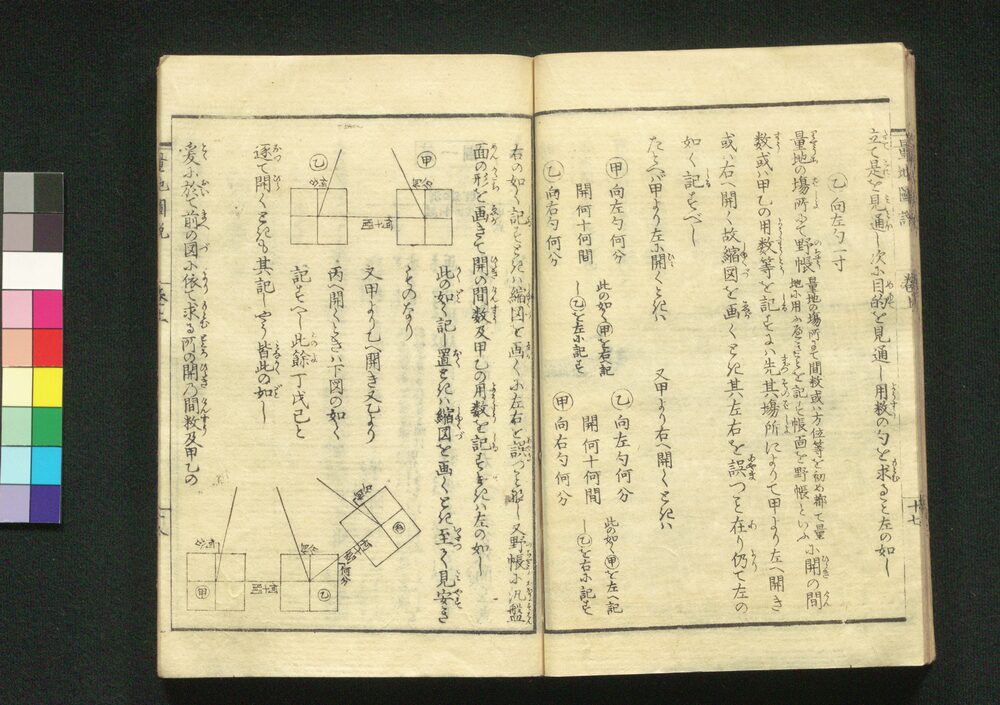 立て是を見通し次に目的を見通し用数の勾を求ること左の如し
㊁乙向左勾一寸
量地の塲所にて野帳
量地の塲所にて間数或ハ方位等を初め都て量
地に用ふ
を記す帳面を野帳といふ
に開の間
数或ハ甲乙の用数等を記すにハ先其塲所によりて甲より左へ開き
或ハ右へ開く故縮図を画くとき其左右を誤つこと在り仍て左の
如く記すべし
たとヘバ甲より左に開くときハ
又甲より右へ開くときハ
甲向左勾何分
開何十何間
乙向右勾何分
此の如く甲を右へ記
し乙を左に記す
乙向左勾何分
開何十何間
甲向右勾何分
此の如く甲を左へ記
し乙を右に記す
右の如く記すときハ縮図を画くに左右を誤つこと無し又野帳に汎盤
面の形を画きて開の間数及甲乙の用数を記すときハ左の如し
甲
乙
此の如く記し置ときハ縮図を画くとき至て見安き
ものなり
又甲より乙へ開き又乙より
丙へ開くときハ下図の如く
記すべし此餘丁戊己と
逐て開くときも其記しやう皆此の如し
爰に於て前の図に依て求る所の開の間数及甲乙の
甲
乙
丙
何分
量地圖説
十七